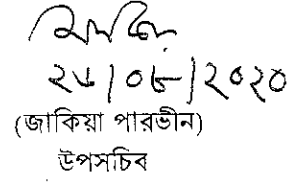 ২৮/০৮/২০২০
(জাকিয়া পারভীন)
উপসচিব